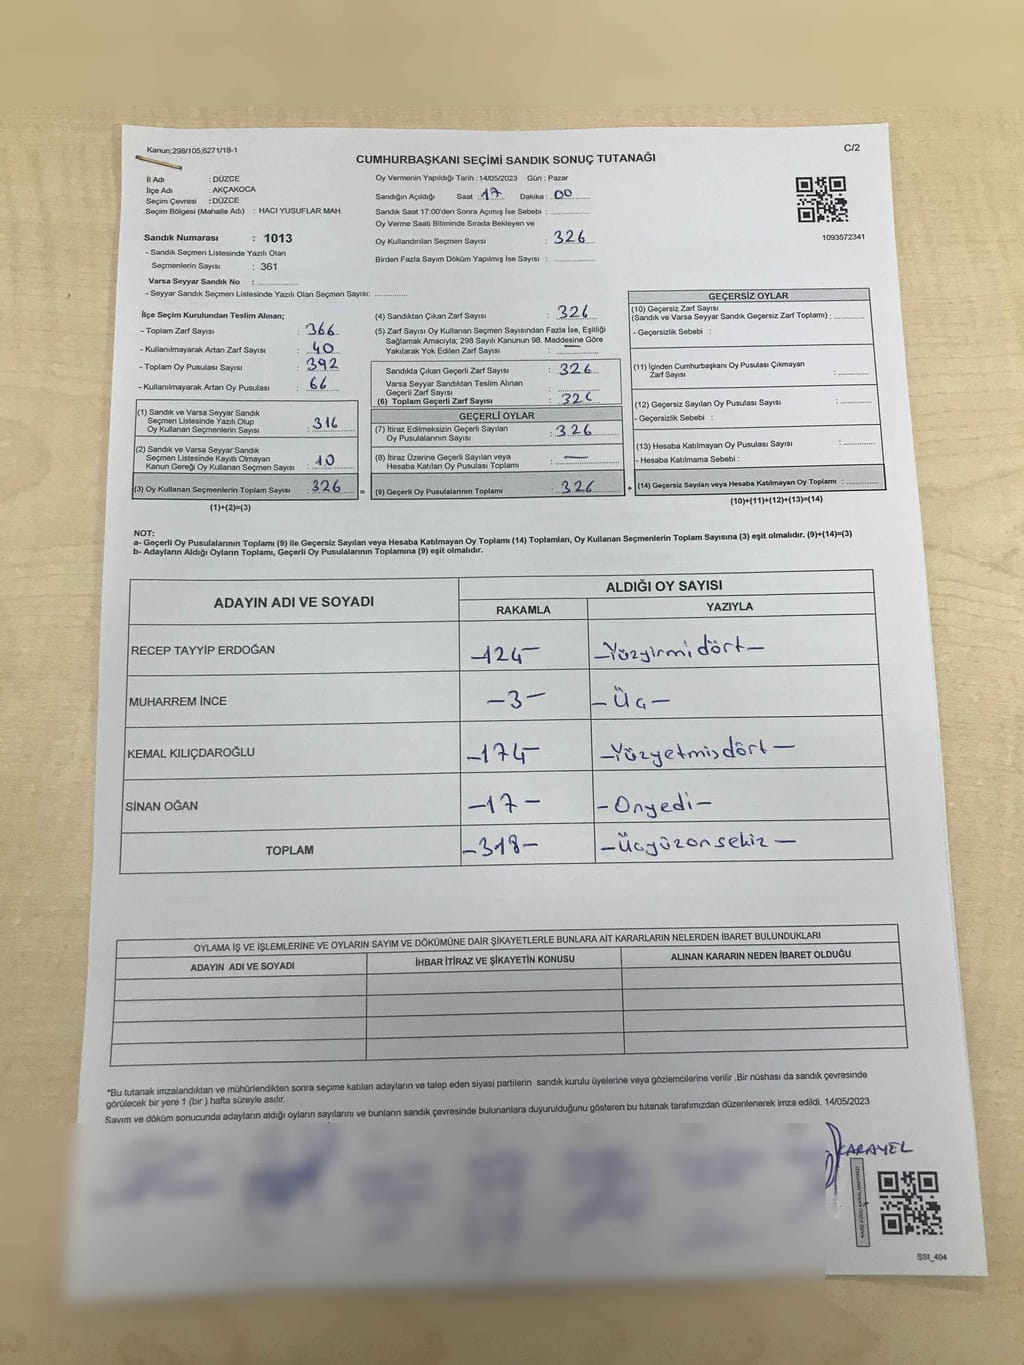 Kanun;298/105;6271/18-1
C/2
CUMHURBAŞKANI SEÇİMİ SANDIK SONUÇ TUTANAĞI
İl Adı : DÜZCE
İlçe Adı : AKÇAKOCA
Seçim Çevresi : DÜZCE
Seçim Bölgesi (Mahalle Adı) : HACI YUSUFLAR MAH.
Sandık Numarası : 1013
- Sandık Seçmen Listesinde Yazılı Olan
Seçmenlerin Sayısı : 361
Varsa Seyyar Sandık No : ..............
- Seyyar Sandık Seçmen Listesinde Yazılı Olan Seçmen Sayısı: ............
Oy Vermenin Yapıldığı Tarih : 14/05/2023 Gün : Pazar
Sandığın Açıldığı Saat 17 Dakika : 00
Sandık Saat 17:00'den Sonra Açımış İse Sebebi : ............
Oy Verme Saati Bitiminde Sırada Bekleyen ve
Oy Kullandırılan Seçmen Sayısı : 326
Birden Fazla Sayım Döküm Yapılmış İse Sayısı : ............
1093572341
İlçe Seçim Kurulundan Teslim Alınan;
- Toplam Zarf Sayısı : 366
- Kullanılmayarak Artan Zarf Sayısı : 40
- Toplam Oy Pusulası Sayısı : 392
- Kullanılmayarak Artan Oy Pusulası : 66
(1) Sandık ve Varsa Seyyar Sandık
Seçmen Listesinde Yazılı Olup
Oy Kullanan Seçmenlerin Sayısı : 316
(2) Sandık ve Varsa Seyyar Sandık
Seçmen Listesinde Kayıtlı Olmayan
Kanun Gereği Oy Kullanan Seçmen Sayısı : 10
(3) Oy Kullanan Seçmenlerin Toplam Sayısı : 326
(1)+(2)=(3)
(4) Sandıktan Çıkan Zarf Sayısı : 326
(5) Zarf Sayısı Oy Kullanan Seçmen Sayısından Fazla İse, Eşitliği
Sağlamak Amacıyla; 298 Sayılı Kanunun 98. Maddesine Göre
Yakılarak Yok Edilen Zarf Sayısı : —
Sandıkta Çıkan Geçerli Zarf Sayısı : 326
Varsa Seyyar Sandıktan Teslim Alınan
Geçerli Zarf Sayısı : ............
(6) Toplam Geçerli Zarf Sayısı : 326
GEÇERLİ OYLAR
(7) İtiraz Edilmeksizin Geçerli Sayılan
Oy Pusulalarının Sayısı : 326
(8) İtiraz Üzerine Geçerli Sayılan veya
Hesaba Katılan Oy Pusulası Toplamı : —
= (9) Geçerli Oy Pusulalarının Toplamı : 326
GEÇERSİZ OYLAR
(10) Geçersiz Zarf Sayısı
(Sandık ve Varsa Seyyar Sandık Geçersiz Zarf Toplamı) : .........
- Geçersizlik Sebebi :
(11) İçinden Cumhurbaşkanı Oy Pusulası Çıkmayan
Zarf Sayısı : .........
(12) Geçersiz Sayılan Oy Pusulası Sayısı : .........
- Geçersizlik Sebebi :
(13) Hesaba Katılmayan Oy Pusulası Sayısı : .........
- Hesaba Katılmama Sebebi :
+ (14) Geçersiz Sayılan veya Hesaba Katılmayan Oy Toplamı : .........
(10)+(11)+(12)+(13)=(14)
NOT:
a- Geçerli Oy Pusulalarının Toplamı (9) ile Geçersiz Sayılan veya Hesaba Katılmayan Oy Toplamı (14) Toplamları, Oy Kullanan Seçmenlerin Toplam Sayısına (3) eşit olmalıdır. (9)+(14)=(3)
b- Adayların Aldığı Oyların Toplamı, Geçerli Oy Pusulalarının Toplamına (9) eşit olmalıdır.
ADAYIN ADI VE SOYADI ALDIĞI OY SAYISI
RAKAMLA YAZIYLA
RECEP TAYYİP ERDOĞAN -124- -Yüzyirmi dört-
MUHARREM İNCE -3- -Üç-
KEMAL KILIÇDAROĞLU -174- -Yüzyetmişdört-
SİNAN OĞAN -17- -Onyedi-
TOPLAM -318- -Üçyüzonsekiz-
OYLAMA İŞ VE İŞLEMLERİNE VE OYLARIN SAYIM VE DÖKÜMÜNE DAİR ŞİKAYETLERLE BUNLARA AİT KARARLARIN NELERDEN İBARET BULUNDUKLARI
ADAYIN ADI VE SOYADI İHBAR İTİRAZ VE ŞİKAYETİN KONUSU ALINAN KARARIN NEDEN İBARET OLDUĞU
*Bu tutanak imzalandıktan ve mühürlendikten sonra seçime katılan adayların ve talep eden siyasi partilerin sandık kurulu üyelerine veya gözlemcilerine verilir .Bir nüshası da sandık çevresinde
görülecek bir yere 1 (bir ) hafta süreyle asılır.
Sayım ve döküm sonucunda adayların aldığı oyların sayılarını ve bunların sandık çevresinde bulunanlara duyurulduğunu gösteren bu tutanak tarafımızdan düzenlenerek imza edildi. 14/05/2023
KARAYEL
SSI_404